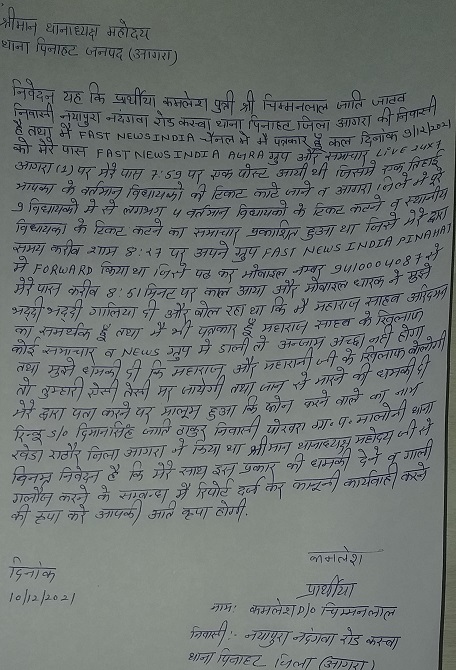 श्रीमान थानाध्यक्ष महोदय
थाना पिनाहट जनपद (आगरा)
निवेदन यह कि प्रार्थीया कमलेश पुत्री श्री चिम्मनलाल जाति जाटव
निवासी नयापुरा नदगवा रोड कस्वा थाना पिनाहट जिला आगरा की निवासी
है तथा में FAST NEWS INDIA चैनल में में पत्रकार हूँ कल दिनांक 9/12/2021
को मेरे पास FAST NEWS INDIA AGRA ग्रुप और समाचार LIVE 24x7
आगरा (2) पर मेरे पास 7:59 पर एक पोस्ट आयी थी जिसमें एक तिहाई
भाजपा के वर्तमान विधायको की टिकट काटे जाने व आगरा जिले में पूरे
9 विधायको में से लगभग 4 वर्तमान विधायको के टिकट कटने व स्थानीय
विधायको के टिकट कटने का समाचार प्रकाशित हुआ था जिसे मेरे द्वारा
समय करीब शाम 8:27 पर अपने ग्रुप FAST NEWS INDIA PINAHAT
में FORWARD किया था जिसे पढ कर मोबाइल नम्बर 9410004087 से
मेरे पास करीब 8:51 मिनट पर काल आया और मोबाइल धारक ने मुझे
भददी भददी गालिया दी और बोल रहा था कि में महाराज साहब अरिदमन
का समर्थक हूँ तथा में भी पत्रकार हूँ महाराज साहब के खिलाफ
कोई समाचार व NEWS ग्रुप में डाली तो अन्जाम अच्छा नही होगा
तथा मुझे धमकी दी कि महाराज और महारानी जी के खिलाफ बोलोगी
तो तुम्हारी ऐसी तैसी मर जायेगी तथा जान से मारने की धमकी दी
मेरे द्वारा पता करने पर मालूम हुआ कि फोन करने वाले का नाम
रिन्कू S/o दिमानसिंह जाति ठाकुर निवासी पोखरा ग्रा० प० मालोनी थाना
खेडा राठौर जिला आगरा ने किया था श्रीमान थानाध्यक्ष महोदय जी से
विनम्र निवेदन है कि मेरे साथ इस प्रकार की धमकी देने व गाली
गलौज करने के सम्बन्ध में रिपोर्ट दर्ज कर कानूनी कार्यवाही करने
की कृपा करे आपकी अति कृपा होगी.
कमलेश
दिनांक
प्रार्थीया
10/12/2021
नाम: कमलेश D/o चिम्मनलाल
निवासी:- नयापुरा नदंगवा रोड कस्वा
थाना पिनाहट जिला (आगरा)